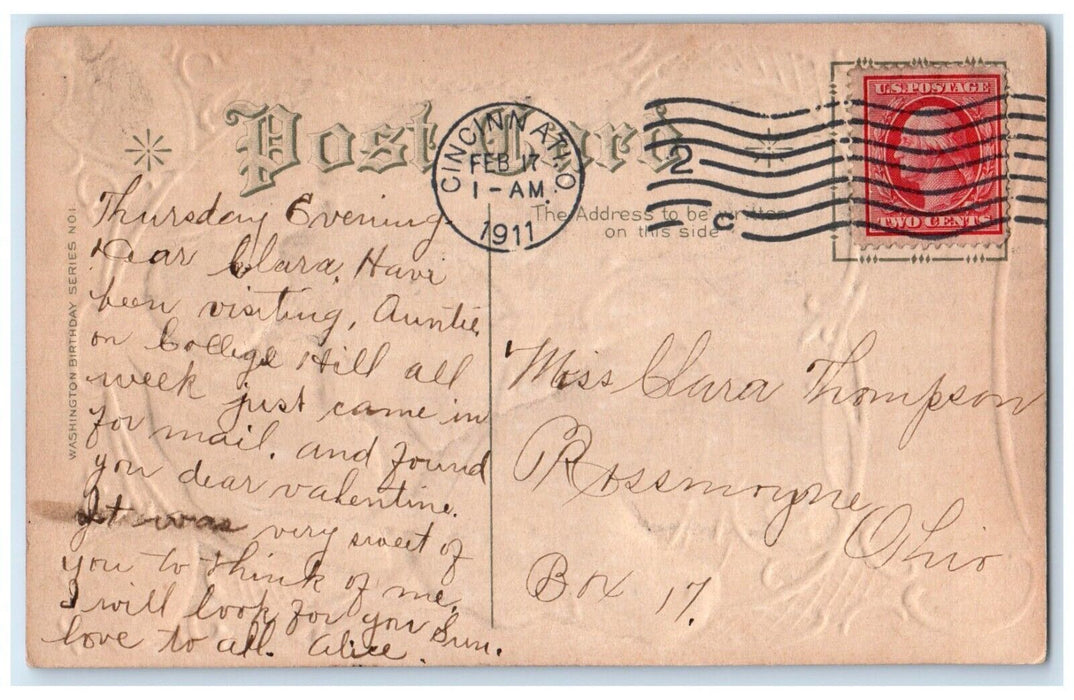 Post Card
CINCINNATI, O.
FEB 17
1-AM.
1911
2
C
U.S. POSTAGE
TWO CENTS
The Address to be written
on this side
WASHINGTON BIRTHDAY SERIES NO1.
Thursday Evening.
Dear Clara, Have
been visiting, Auntie
on College Hill all
week just came in
for mail. and found
you dear valentine.
It was very sweet of
you to think of me.
I will look for you Sun.
love to all. Alice.
Miss Clara Thompson
Rossmoyne
Ohio
Box 17.